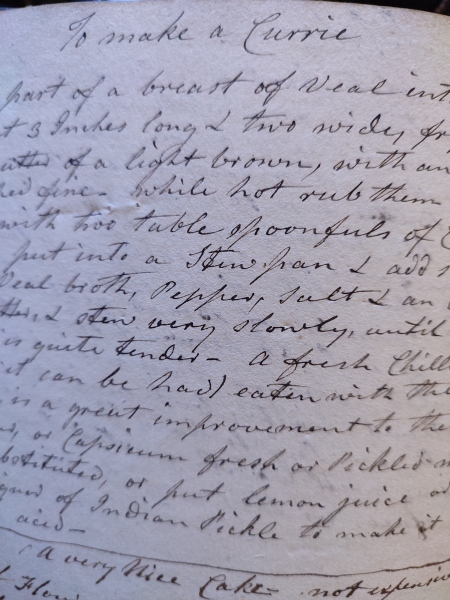 To make a Currie
part of a breast of Veal int
t 3 Inches long & two wide, fr
of a light brown, with an
hed fine - while hot rub them
with two table spoonfuls of C
put into a Stew pan & add s
Veal broth, Pepper, Salt & an
& stew very slowly, until
is quite tender - a fresh Chill
it can be had) eaten with the
is a great improvement to the
or Capsicum fresh or Pickled m
bstituted, or put lemon juice or
of Indian Pickle to make it
acid -
a very Nice Cake - not expensiv
Flour